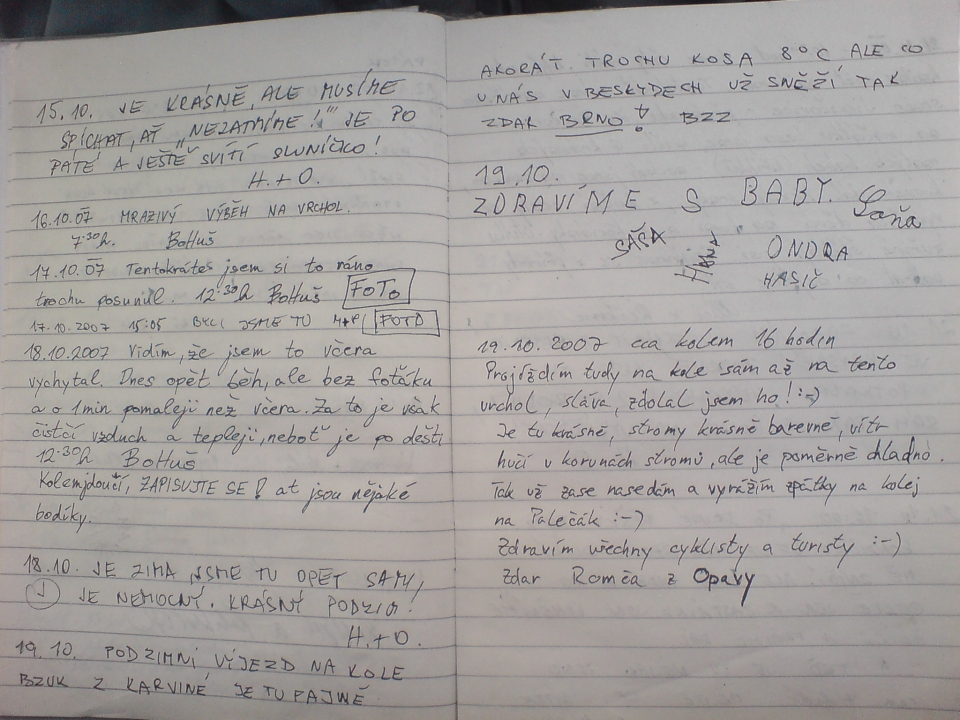 15.10. JE KRÁSNĚ, ALE MUSÍME
SPÍCHAT, AŤ „NEZATMÍME!" JE PO
PÁTÉ A JEŠTĚ SVÍTÍ SLUNÍČKO!
H. + O.
16.10.07 MRAZIVÝ VÝBĚH NA VRCHOL.
7:30h. BoHuš
17.10.07 Tentokrátes jsem si to ráno
trochu posunul. 12:30h BoHuš FOTO
17.10.2007 15:05 BYLI JSME TU M+P FOTO
18.10.2007 Vidím, že jsem to včera
vychytal. Dnes opět běh, ale bez foťáku
a o 1min pomaleji než včera. Za to je však
čistčí vzduch a tepleji, neboť je po dešti
12:30h BoHuš
Kolemjdoučí, ZAPISUJTE SE! at jsou nějaké
bodíky.
18.10. JE ZIMA, JSME TU OPĚT SAMY,
J JE NEMOCNÝ. KRÁSNÝ PODZIM!
H. + O.
19.10. PODZIMNÍ VÝJEZD NA KOLE
BZUK Z KARVINÉ JE TU FAJNĚ
AKORÁT TROCHU KOSA 8°C ALE CO
U NÁS V BESKYDECH UŽ SNĚŽÍ TAK
ZDAR BRNO! BZZ
19.10.
ZDRAVÍME S BABY. Soňa
SÁŠA HANA ONDRA
HASIČ
19.10.2007 cca kolem 16 hodin
Projíždím tudy na kole sám až na tento
vrchol, sláva, zdolal jsem ho! :-)
Je tu krásně, stromy krásně barevné, vítr
hučí v korunách stromů, ale je poměrně chladno.
Tak už zase nasedám a vyrážím zpátky na kolej
na Palečák :-)
Zdravím všechny cyklisty a turisty :-)
Zdar Romča z Opavy